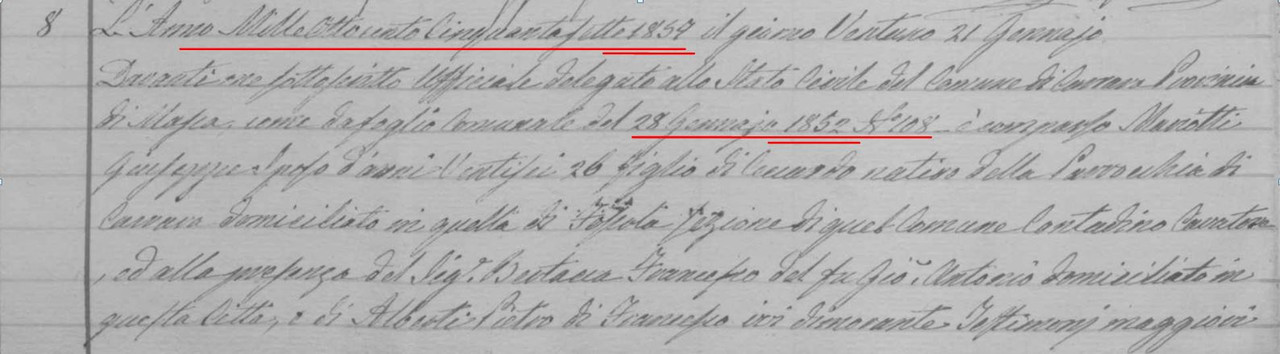 8 L'Anno Mille Ottocento Cinquantasette 1857 il giorno Ventuno 21 Gennajo
Davanti me sottoscritto Uffiziale delegato allo Stato Civile del Comune di Carrara Provincia
di Massa, come da foglio Comunale del 28 Gennajo 1852 N° 108 è comparso Mariotti
Giuseppe Sposo d'anni Ventisei 26 figlio di nativo della Parrocchia di
Carrara domiciliato in quella di sezione di quel Comune Contadino Cavatore
, ed alla presenza del Sig.r Bertacca Francesco del fu Gio. Antonio domiciliato in
questa Città, e di Alberti Pietro di Francesco ivi dimorante Testimonj maggiori